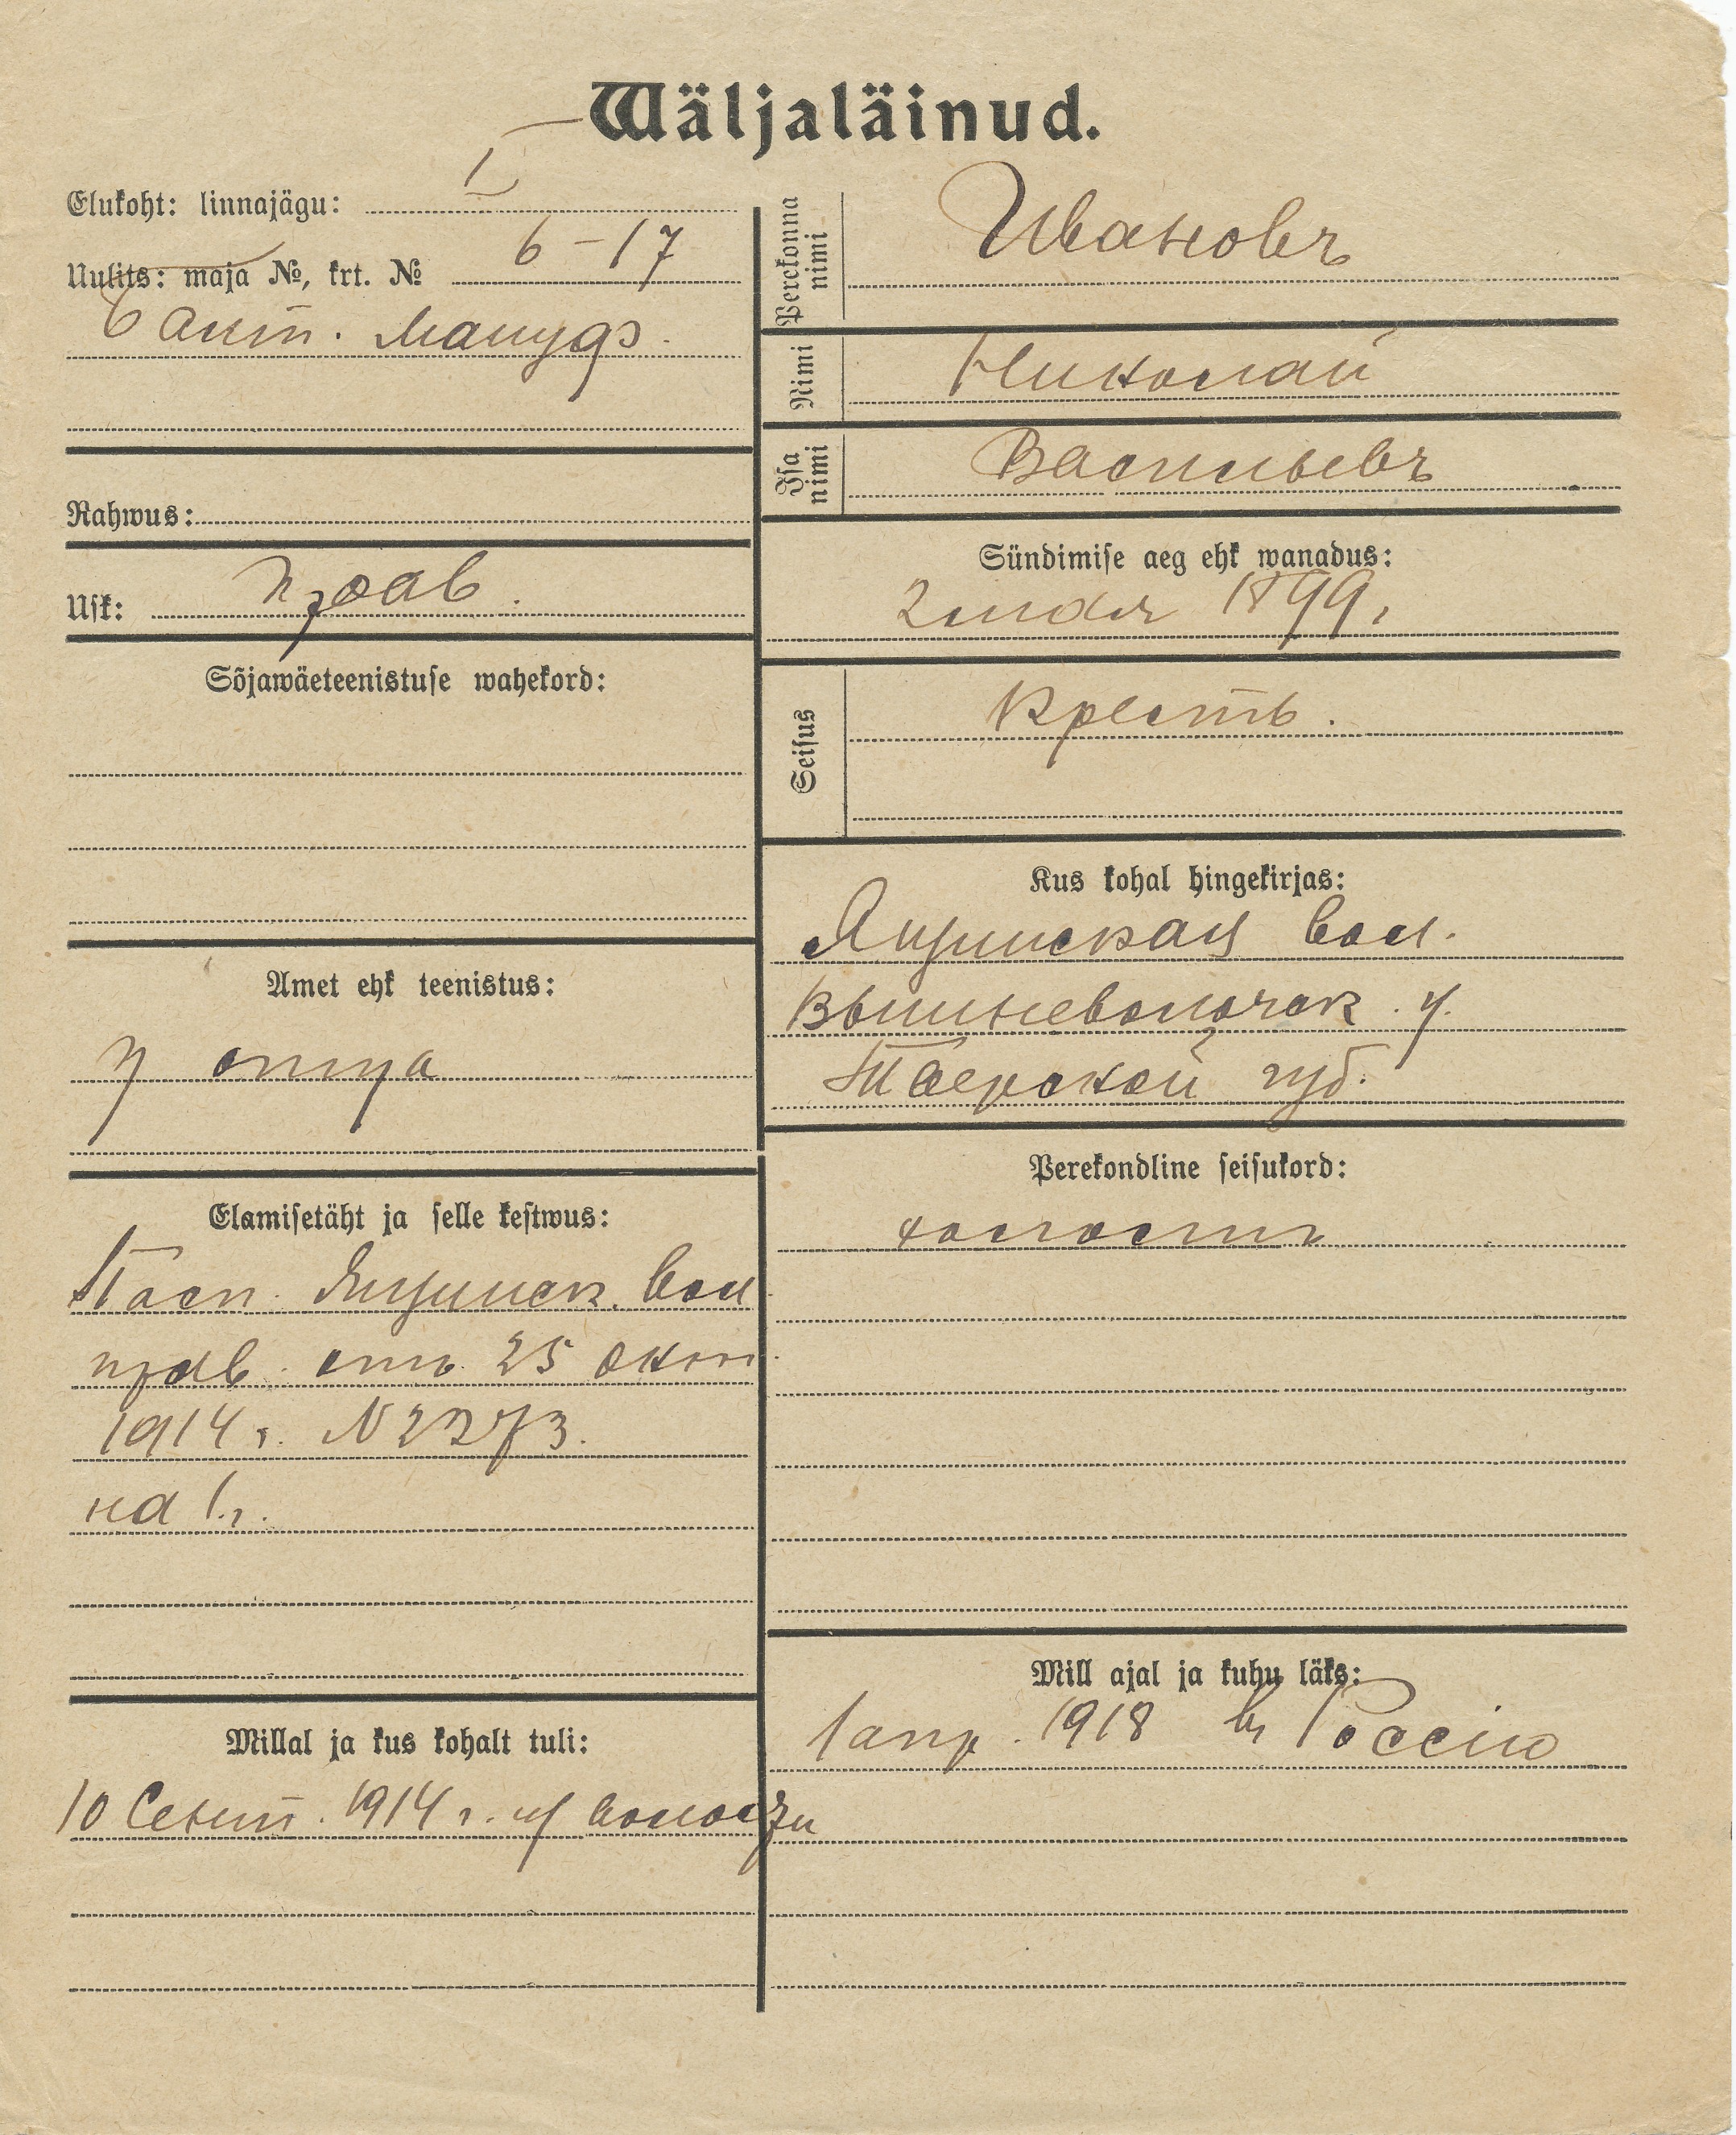 Wäljaläinud.
Elukoht: linnajägu: I
Uulits: maja №, krt. № 6-17
Балт. Мануф.
Rahwus:
Usk: прав.
Sõjawäeteenistuse wahekord:
Amet ehk teenistus:
у отца
Elamisetäht ja selle kestwus:
Пасп. вол.
прав. отъ 25 окт.
1914 г. N 2273.
на 1 г.
Millal ja kus kohalt tuli:
10 Сент. 1914 г. из
Perekonna nimi
Ивановъ
Nimi
Николай
Isa nimi
Васильевъ
Sündimise aeg ehk wanadus:
1899 г
Seisus
Крест.
Kus kohal hingekirjas:
вол.
Вышневолочек. у.
Тверской губ.
Perekondline seisukord:
холостъ
Mill ajal ja kuhu läks:
1 апр. 1918 въ Россію